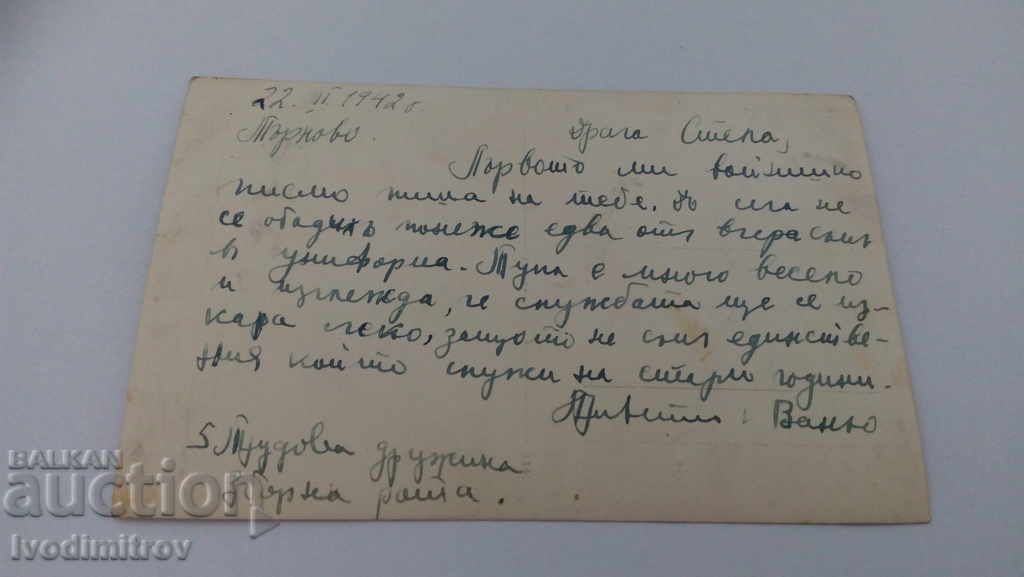 22. II 1942 г.
Търново.
Драга Степа,
Първото ми войнишко
писмо пиша на тебе. До сега не
се обадихъ понеже едва отъ вчера съмъ
въ униформа. Тука е много весело
и изглежда, че службата ще се из-
кара леко, защото не съмъ единстве-
ния който служи на стари години.
Ваньо
5 Трудова дружина
рота.
BALKAN
auction
Ivodimitrov